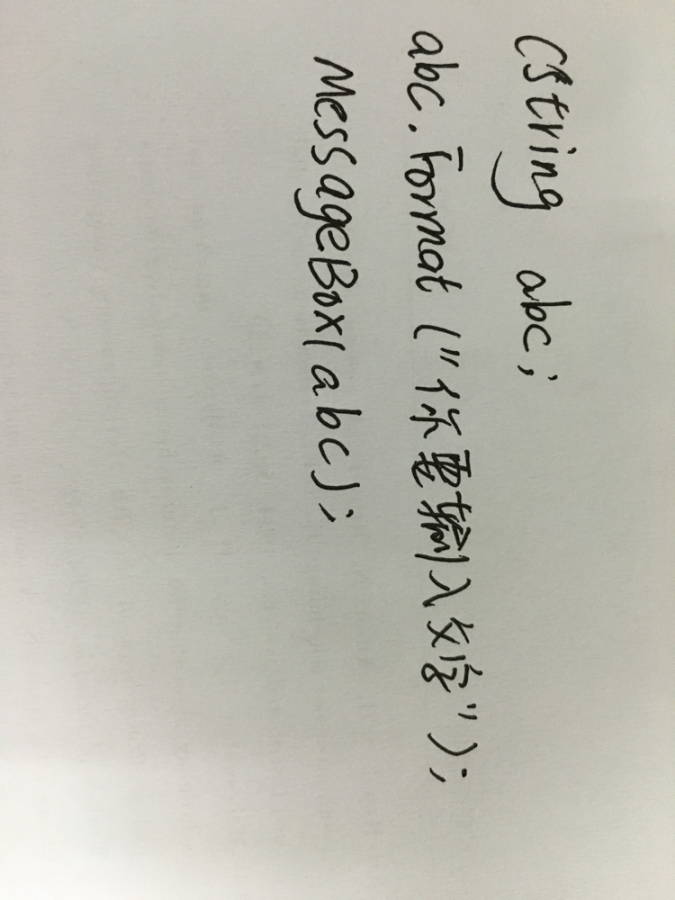 CString abc;
abc.Format("你要输入文字");
MessageBox(abc);